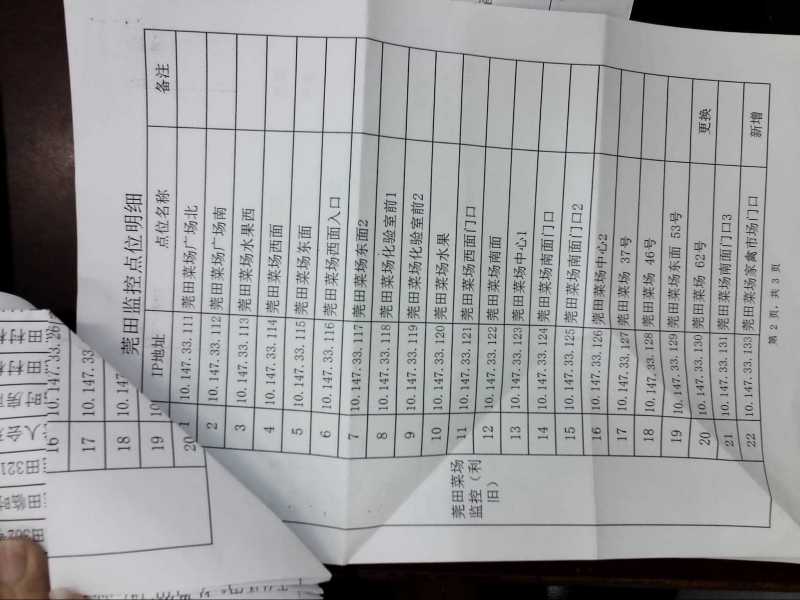 莞田监控点位明细
IP地址 点位名称 备注
莞田菜场监控（利旧）
1 10.147.33.111 莞田菜场广场北
2 10.147.33.112 莞田菜场广场南
3 10.147.33.113 莞田菜场水果西
4 10.147.33.114 莞田菜场西面
5 10.147.33.115 莞田菜场东面
6 10.147.33.116 莞田菜场西面入口
7 10.147.33.117 莞田菜场东面2
8 10.147.33.118 莞田菜场化验室前1
9 10.147.33.119 莞田菜场化验室前2
10 10.147.33.120 莞田菜场水果
11 10.147.33.121 莞田菜场西面门口
12 10.147.33.122 莞田菜场南面
13 10.147.33.123 莞田菜场中心1
14 10.147.33.124 莞田菜场南面门口
15 10.147.33.125 莞田菜场南面门口2
16 10.147.33.126 莞田菜场中心2
17 10.147.33.127 莞田菜场 37号
18 10.147.33.128 莞田菜场 46号
19 10.147.33.129 莞田菜场东面 53号
20 10.147.33.130 莞田菜场 62号 更换
21 10.147.33.131 莞田菜场南面门口3
22 10.147.33.133 莞田菜场家禽市场门口 新增
第 2 页，共 3 页
16 10.147.33.26
17 10.147.33
18 10.147
19 10
20